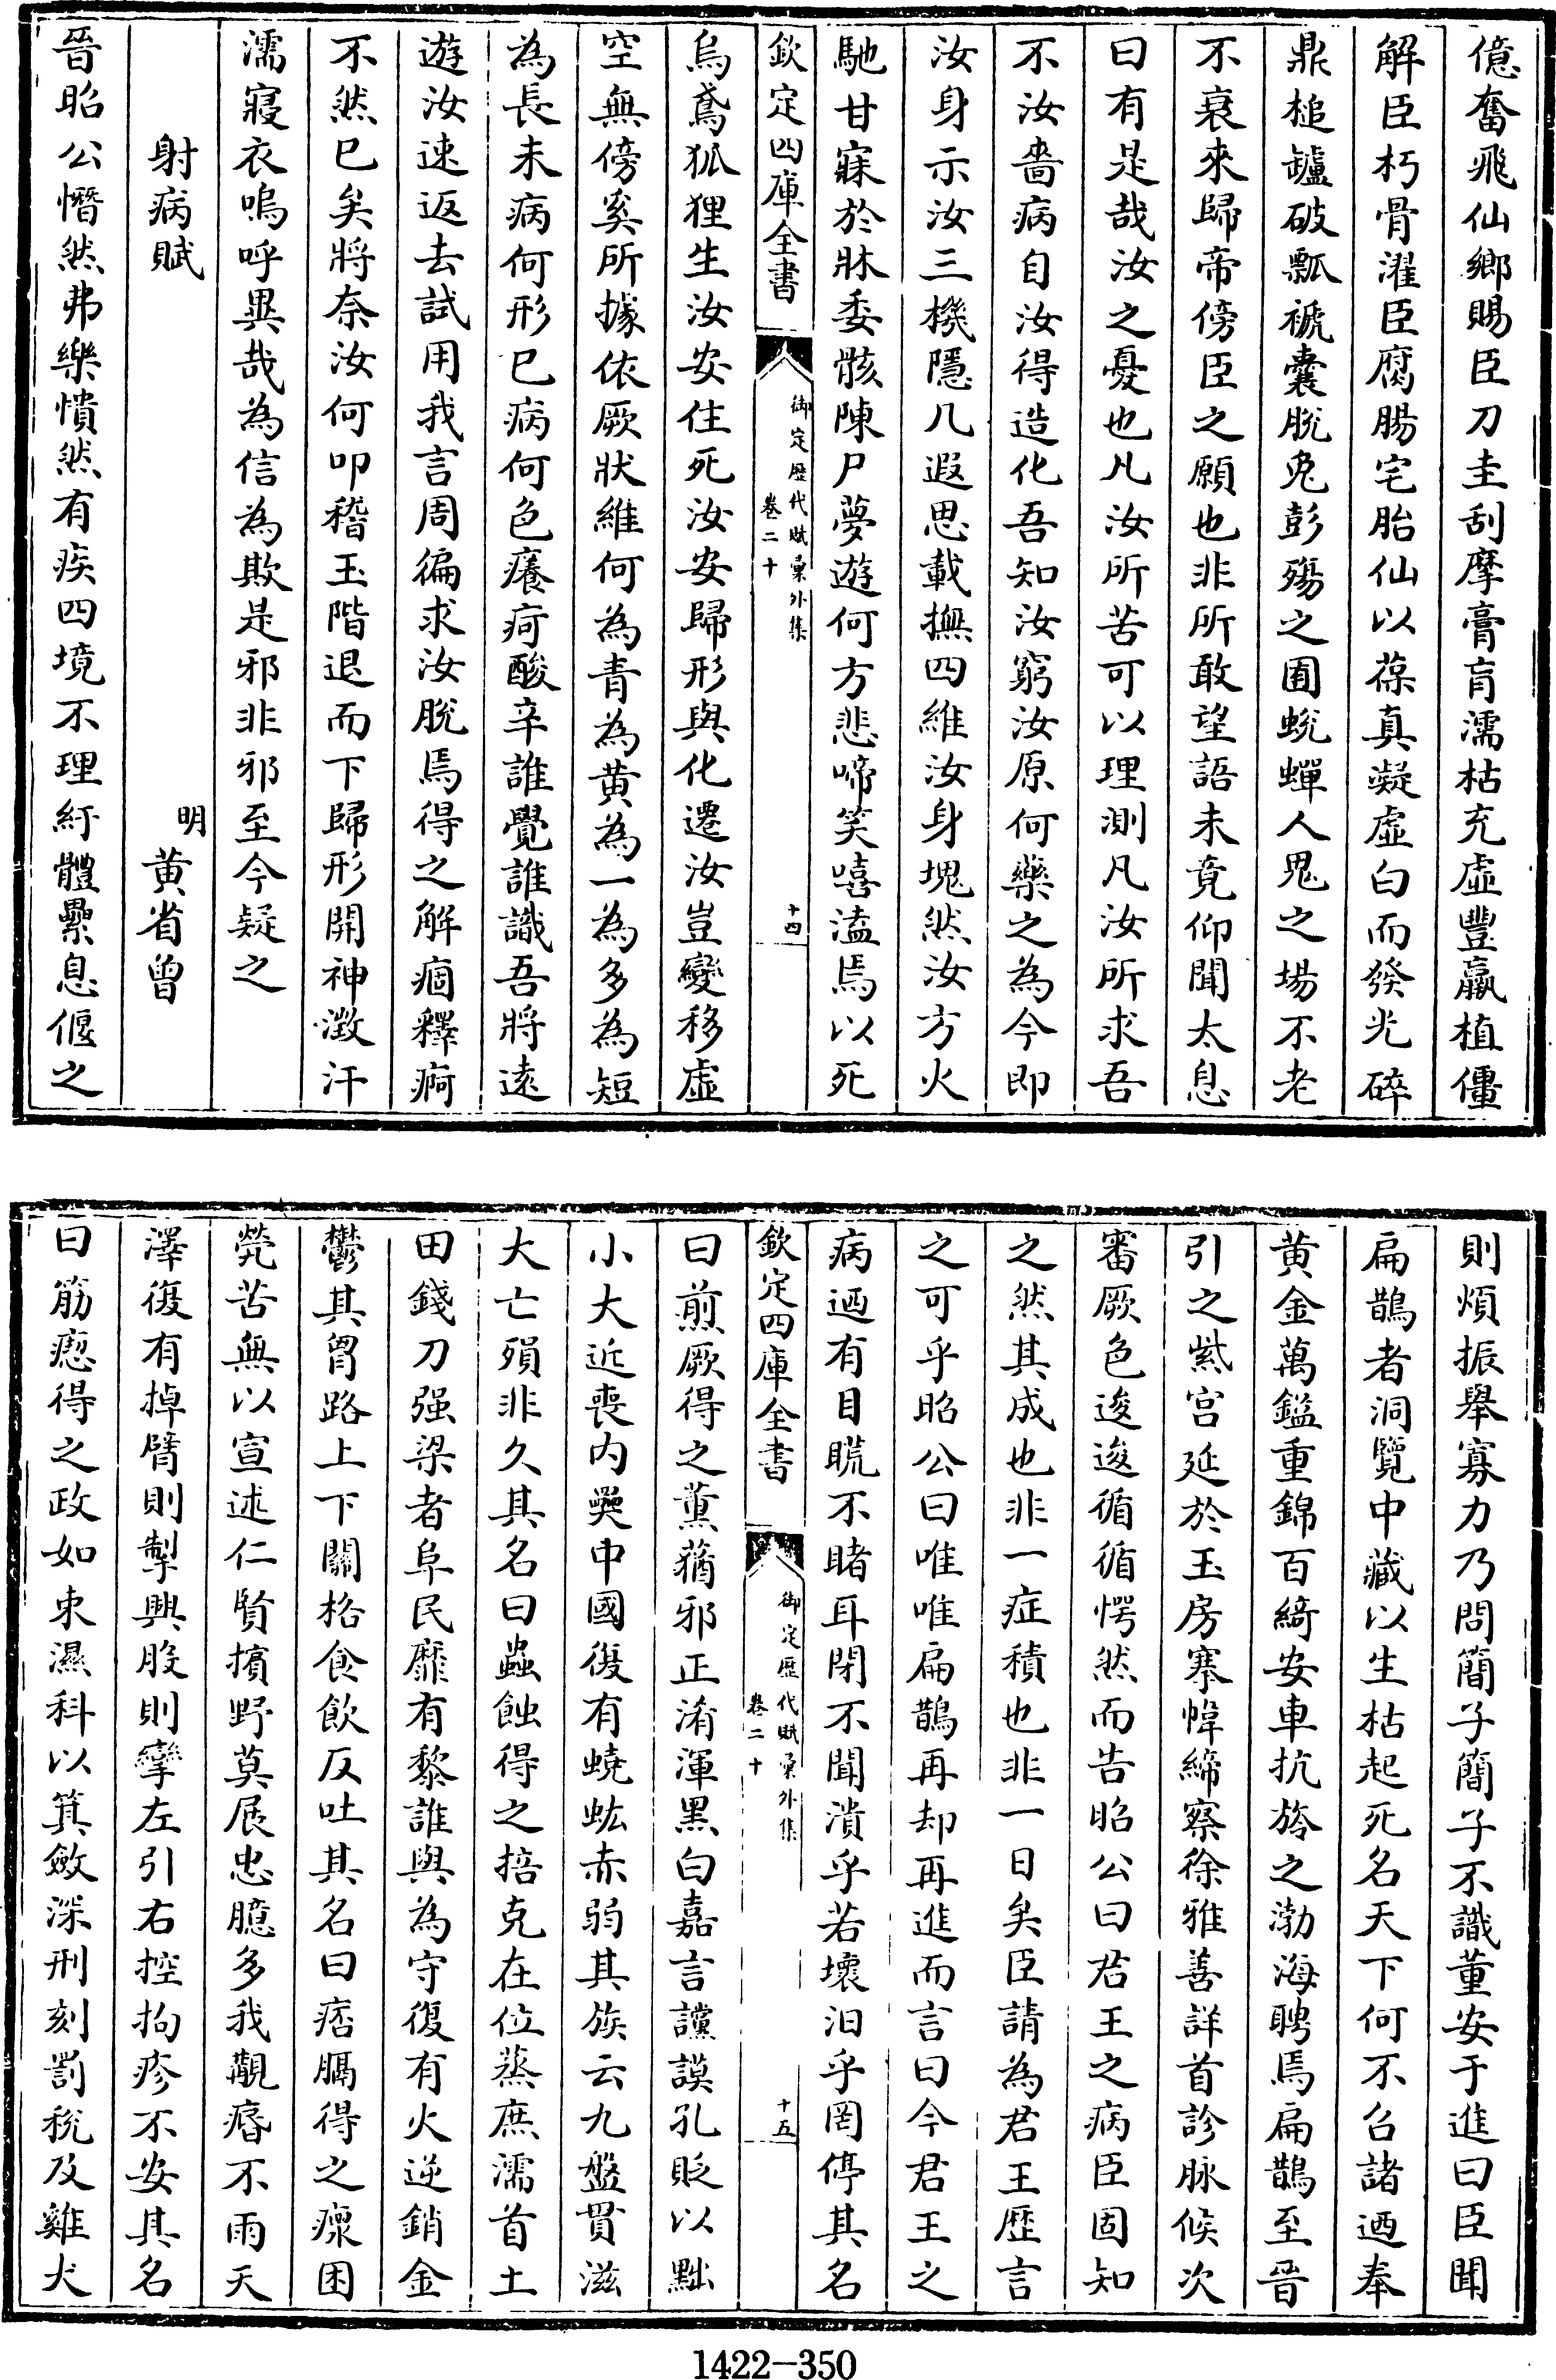 億奮飛仙鄉賜臣刀圭刮摩膏肓濡枯充虛豐羸植僵
解臣朽骨濯臣腐腸宅胎仙以葆真凝虛白而發光碎
鼎槌罏破瓢褫囊脫兔彭殤之囿蛻蟬人鬼之場不老
不衰來歸帝傍臣之願也非所敢望語未竟仰聞太息
曰有是哉汝之憂也凡汝所苦可以理測凡汝所求吾
不汝嗇病自汝得造化吾知汝窮汝原何藥之為今即
汝身示汝三機隱几遐思載撫四維汝身塊然汝方火
馳甘寐於牀委骸陳尸夢遊何方悲啼笑嘻溘焉以死
欽定四庫全書
御定歷代賦彙外集
卷二十
十四
烏鳶狐狸生汝安住死汝安歸形與化遷汝豈變移虛
空無傍奚所據依厥狀維何為青為黃為一為多為短
為長未病何形已病何色癢疴酸辛誰覺誰識吾將遠
遊汝速返去試用我言周徧求汝脫焉得之解痼釋痾
不然已矣將奈汝何叩稽玉階退而下歸形開神澂汗
濡寢衣嗚呼異哉為信為欺是邪非邪至今疑之
射病賦
明
黃省曾
晉昭公憯然弗樂憒然有疾四境不理紆體纍息偃之
則煩振舉寡力乃問簡子簡子不識董安于進曰臣聞
扁鵲者洞覽中藏以生枯起死名天下何不召諸迺奉
黃金萬鎰重錦百綺安車抗旍之渤海聘焉扁鵲至晉
引之紫宮延於玉房褰幃締察徐雅善詳首診脉候次
審厥色逡逡循循愕然而告昭公曰君王之病臣固知
之然其成也非一症積也非一日矣臣請為君王歷言
之可乎昭公曰唯唯扁鵲再却再進而言曰今君王之
病迺有目䀮不睹耳閉不聞潰乎若壞汩乎罔停其名
欽定四庫全書
御定歷代賦彙外集
卷二十
十五
曰煎厥得之薰蕕邪正淆渾黑白嘉言讜謨孔貶以黜
小大近喪內奰中國復有蟯蚘赤弱其族云九盤貫滋
大亡殞非久其名曰蟲蝕得之掊克在位蒸庶濡首土
田錢刀强梁者阜民靡有黎誰與為守復有火逆銷金
鬱其胃路上下關格食飲反吐其名曰痞膈得之瘝困
煢苦無以宣述仁賢擯野莫展忠臆多我覯痻不雨天
澤復有掉臂則掣興股則攣左引右控拘疹不安其名
曰筋㾓得之政如束濕科以箕斂深刑刻罰稅及雞犬
1422-350